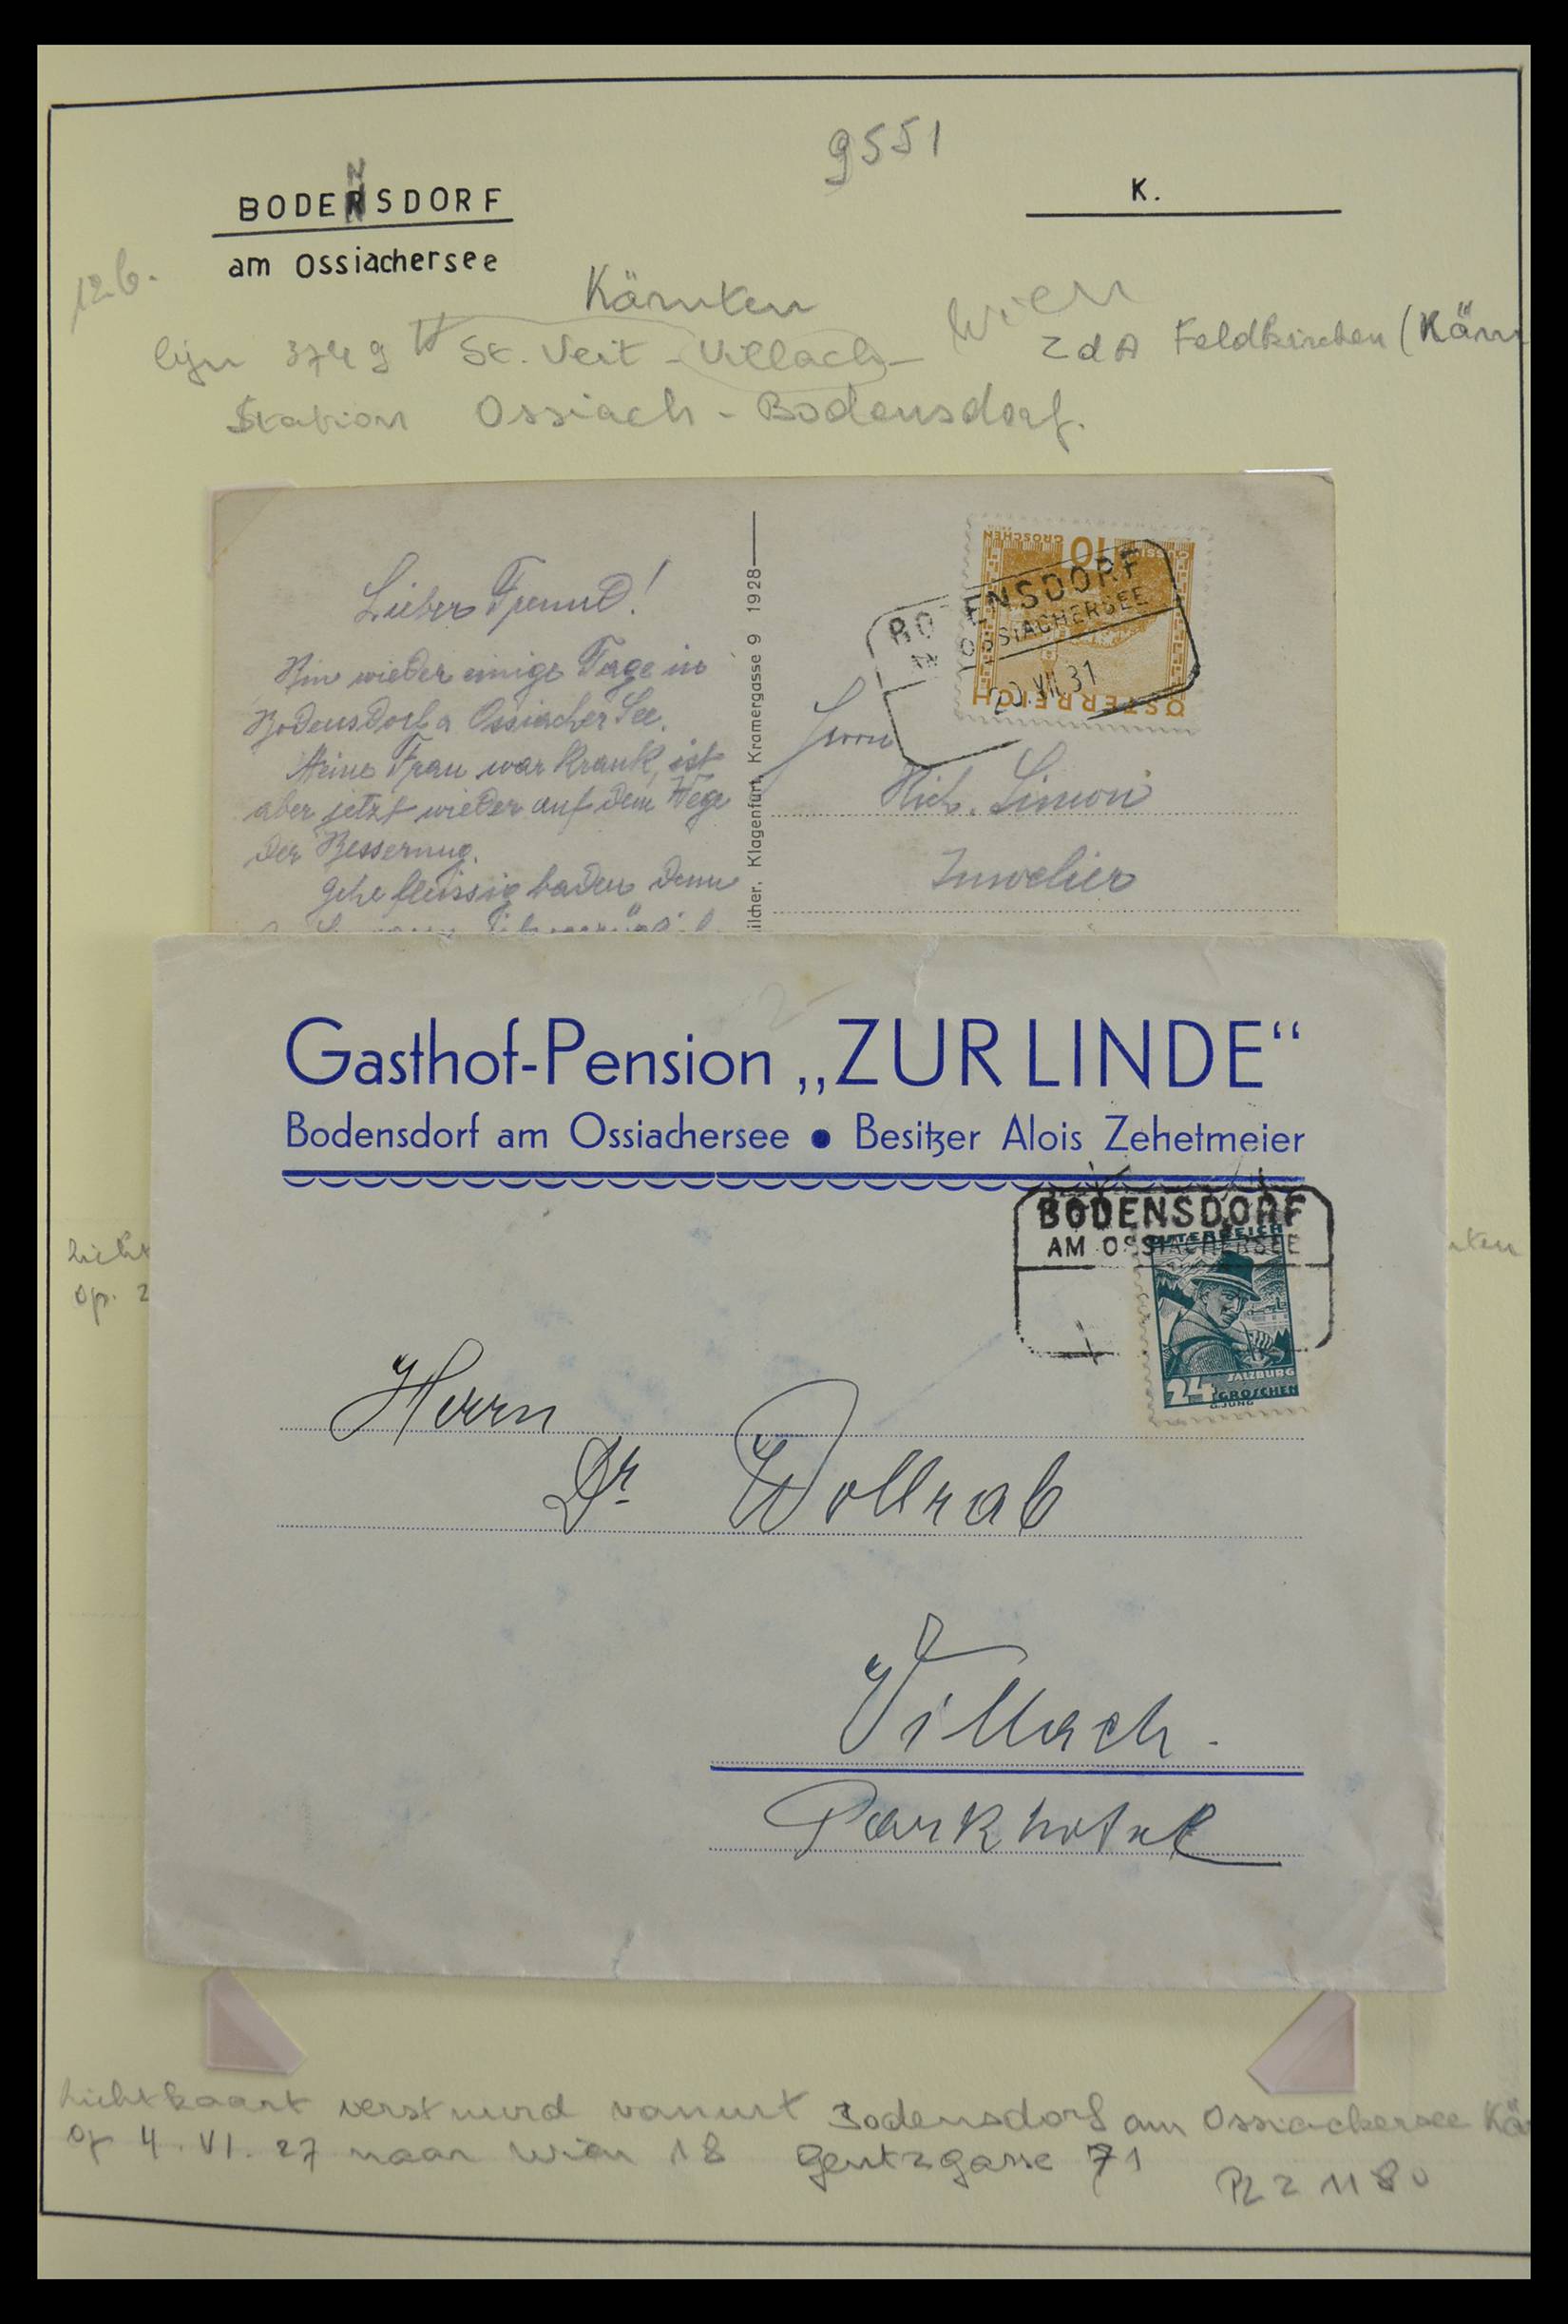 9551
BODENSDORF
K.
am Ossiachersee
12b.
Kärnten
Wien
lijn 3749 St. Veit - Villach -
ZdA Feldkirchen (Kärn
Station Ossiach - Bodensdorf.
Lieber Freund!
Bin wieder einige Tage in
Bodensdorf a Ossiacher See.
Meine Frau war krank, ist
aber jetzt wieder auf dem Wege
der Besserung.
Gehe fleissig baden denn
ilcher, Klagenfurt, Kramergasse 9 1928
GROSCHEN 10 GROSCHEN
ÖSTERREICH
BODENSDORF
OSSIACHERSEE
20.VII.31
Herrn
Rich. Simon
Juwelier
Gasthof-Pension „ZUR LINDE“
Bodensdorf am Ossiachersee • Besitzer Alois Zehetmeier
BODENSDORF
AM OSSIACHERSEE
ÖSTERREICH
SALZBURG
24 GROSCHEN
G.JUNG
licht
op. 2
nten
Herrn
Dr Wollrab
Villach.
Parkhotel
lichtkaart verstuurd vanuit Bodensdorf am Ossiachersee Kä
op 4.VI.27 naar Wien 18 Gentzgasse 71
PLZ 1180